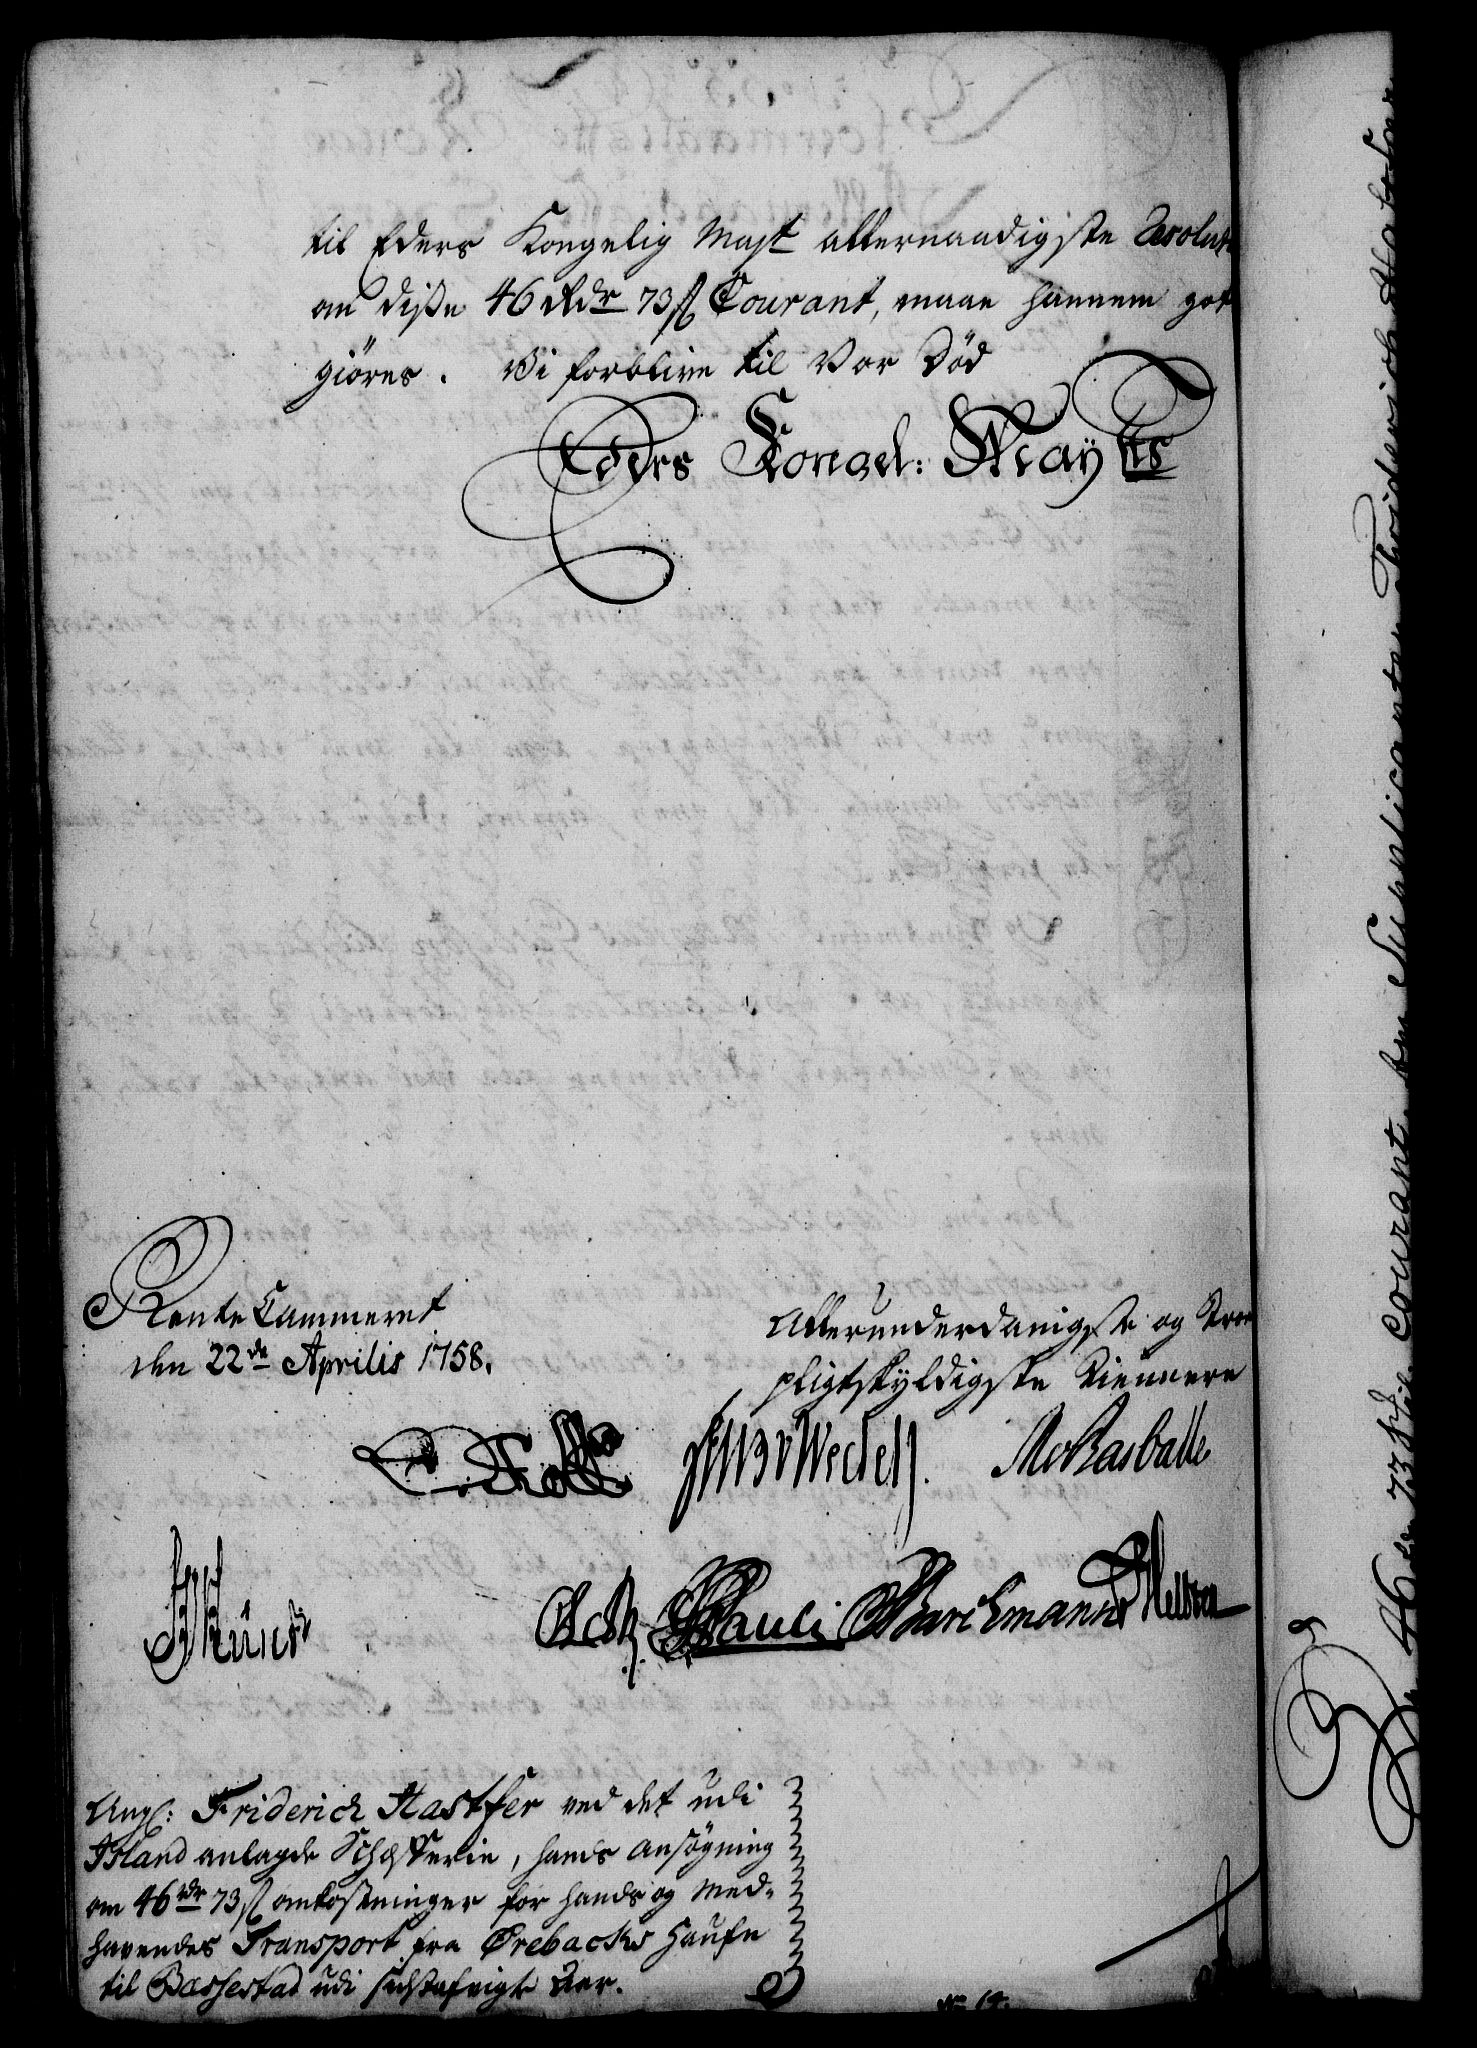 til Eders Kongelig Mayt allernaadigste Resolut
om disse 46 Rdr 73 ß Courant, maae hannem got
giöres. Vi forblive til Vor Död
Eders Kongel: Mayts
Rente Cammeret
den 22de Aprilis 1758.
Allerunderdanigste og Troe
pligtskyldigste Tiennere
Wedell.
Pauli Barchmann
Ang: Friderich Hastfer ved det udi
Island anlagde Schæfferie, hands Ansögning
om 46 rdr 73 ß omkostninger for hands og Med-
havendes Transport fra Örebacks Haufn
til Bæssestad udi sidstafvigte Aar.
No 14.
46 73 Courant, den Supplicanten Friderich Hastfer